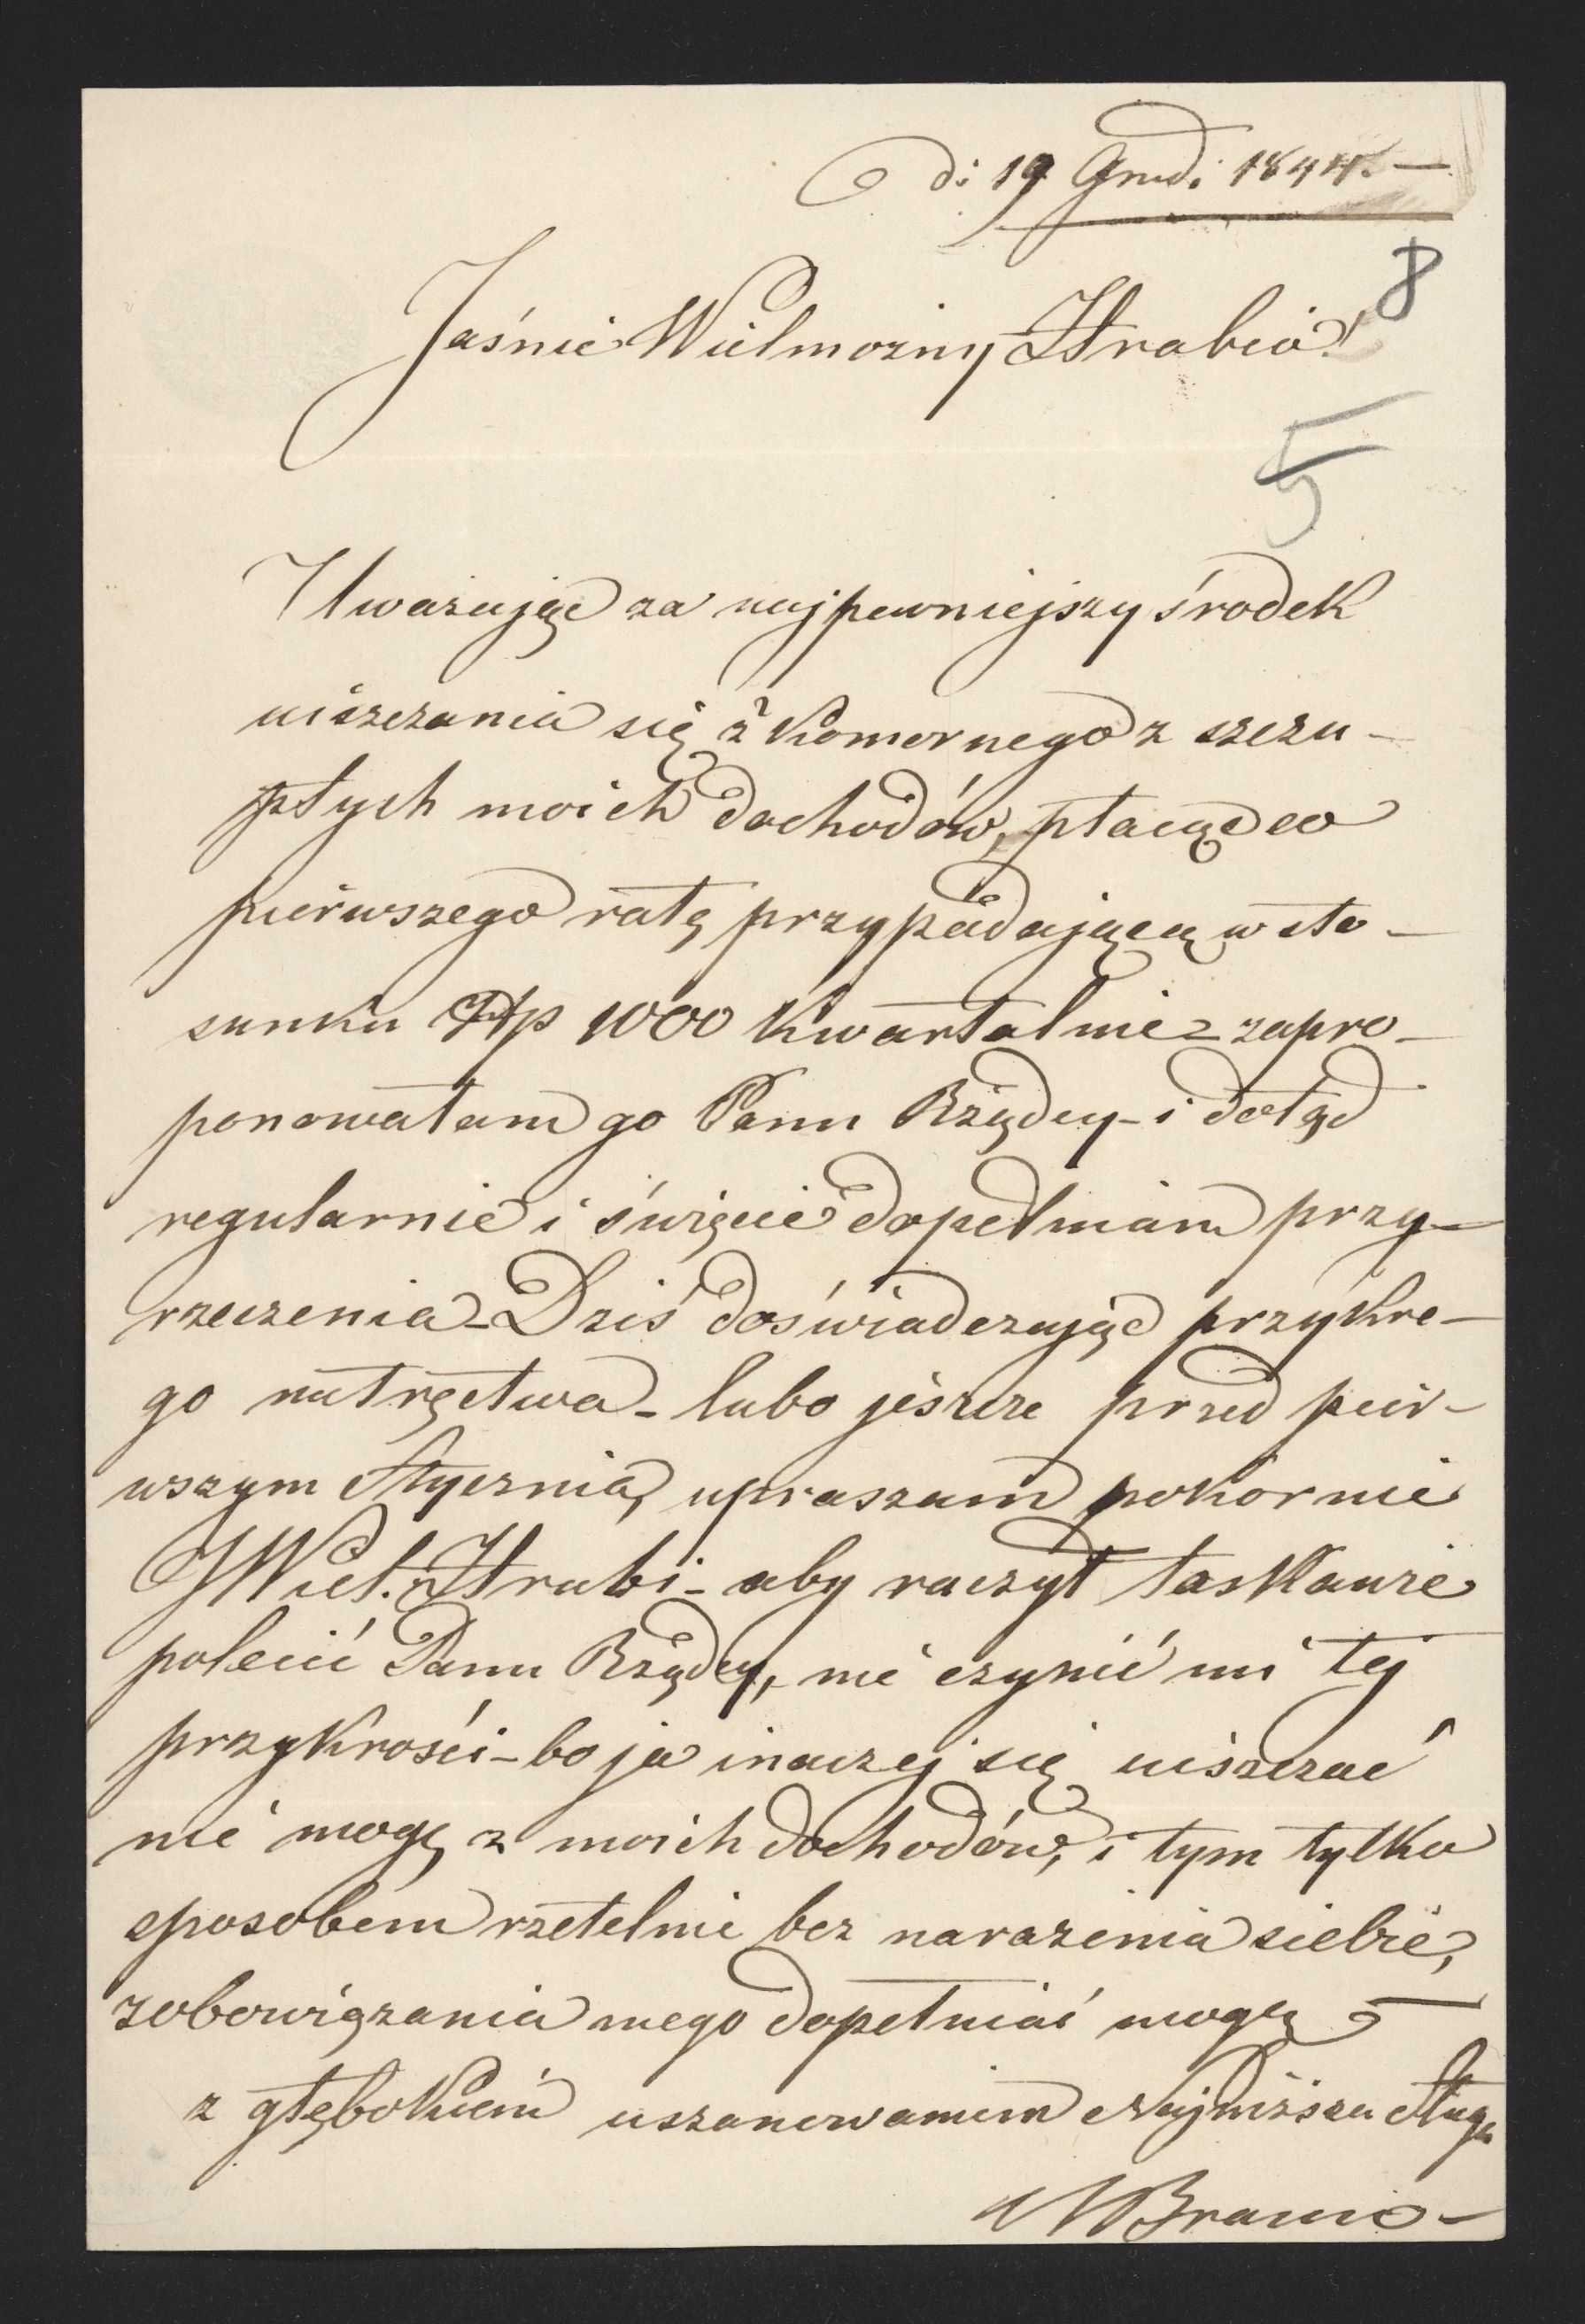 d: 19 Grud: 1844. —
8
Jaśnie Wielmożny Hrabio!
5
Uważając za najpewniejszy środek
uiszczania się z Komornego z szczu-
płych moich dochodów, płacąc co
pierwszego ratę przypadającą w sto-
sunku Złp 1000 Kwartalnie – zapro-
ponowałam go Panu Rządcy – i dotąd
regularnie i święcie dopełniam przy-
rzeczenia – Dziś doświadczając przykre-
go natręctwa – lubo jeszcze przed pier-
wszym Stycznia, upraszam pokornie
JWiel. Hrabi – aby raczył łaskawie
polecić Panu Rządcy, nie czynić mi tej
przykrości – bo ja inaczej się uiszczać
nie mogę z moich dochodów, i tym tylko
sposobem rzetelnie bez narażenia siebie,
zobowiązania mego dopełniać mogę —
z głębokiem uszanowaniem Najniższa Sługa